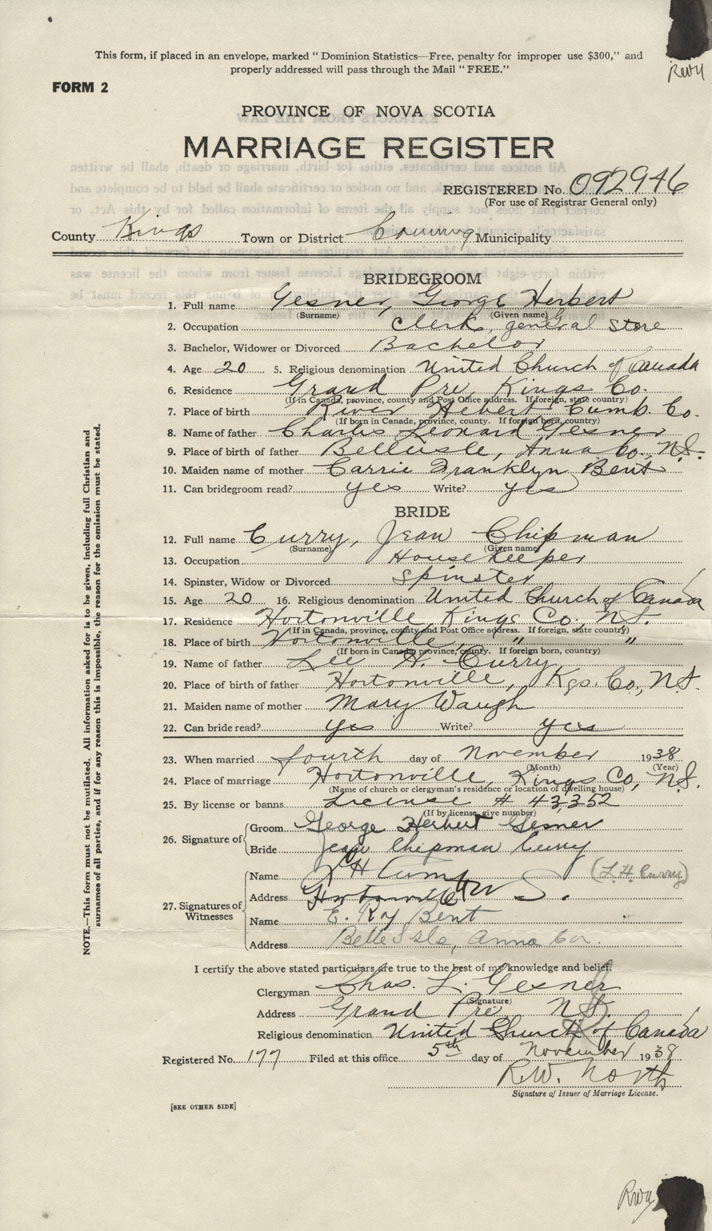 This form, if placed in an envelope, marked "Dominion Statistics—Free, penalty for improper use $300," and
properly addressed will pass through the Mail "FREE."
FORM 2
PROVINCE OF NOVA SCOTIA
MARRIAGE REGISTER
REGISTERED No. 092946
(For use of Registrar General only)
County Kings Town or District Canning Municipality
BRIDEGROOM
1. Full name Gesner, George Herbert
(Surname) (Given name)
2. Occupation Clerk, general store
3. Bachelor, Widower or Divorced Bachelor
4. Age 20 5. Religious denomination United Church of Canada
6. Residence Grand Pre, Kings Co.
(If in Canada, province, county and Post Office address. If foreign, state country)
7. Place of birth River Hebert Cumb. Co.
(If born in Canada, province, county. If foreign born, country)
8. Name of father Charles Leonard Gesner
9. Place of birth of father Belleisle, Anna Co., N.S.
10. Maiden name of mother Carrie Franklyn Bent
11. Can bridegroom read? yes Write? yes
BRIDE
12. Full name Curry, Jean Chipman
(Surname) (Given name)
13. Occupation Housekeeper
14. Spinster, Widow or Divorced Spinster
15. Age 20 16. Religious denomination United Church of Canada
17. Residence Hortonville Kings Co., N.S.
(If in Canada, province, county and Post Office address. If foreign, state country)
18. Place of birth Hortonville " "
(If born in Canada province, county. If foreign born, country)
19. Name of father Lee H. Curry
20. Place of birth of father Hortonville, Kgs. Co., N.S.
21. Maiden name of mother Mary Waugh
22. Can bride read? yes Write? yes
23. When married fourth day of November 1938
(Month) (Year)
24. Place of marriage Hortonville, Kings Co, N.S.
(Name of church or clergyman's residence or location of dwelling house)
25. By license or banns License # 43352
(If by license, give number)
26. Signature of Groom George Herbert Gesner
Bride Jean Chipman Curry
27. Signatures of Witnesses
Name L H Curry (L.H. Curry)
Address Hortonville N S.
Name E. Roy Bent
Address Belle Isle, Anna Co.
I certify the above stated particulars are true to the best of my knowledge and belief.
Clergyman Chas. L. Gesner
(Signature)
Address Grand Pre, N.S.
Religious denomination United Church of Canada
Registered No. 177 Filed at this office 5th day of November 1938
R.W. North
Signature of Issuer of Marriage License.
[SEE OTHER SIDE]
NOTE.—This form must not be mutilated. All information asked for is to be given, including full Christian and
surnames of all parties, and if for any reason this is impossible, the reason for the omission must be stated.